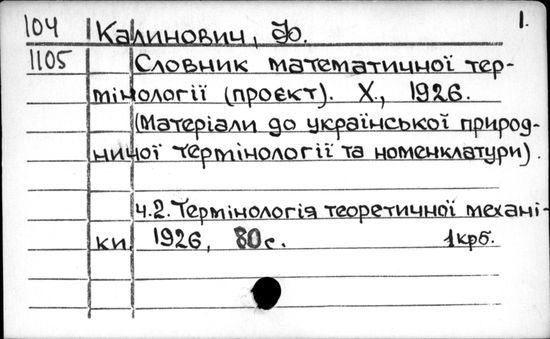 104 Калинович, Ф. 1.
1105 Словник математичної тер-
мінології (проєкт). Х., 1926.
(Матеріали до української природ-
ничої термінології та номенклатури).
ч.2. Термінологія теоретичної механі-
ки. 1926, 80 с. 1крб.